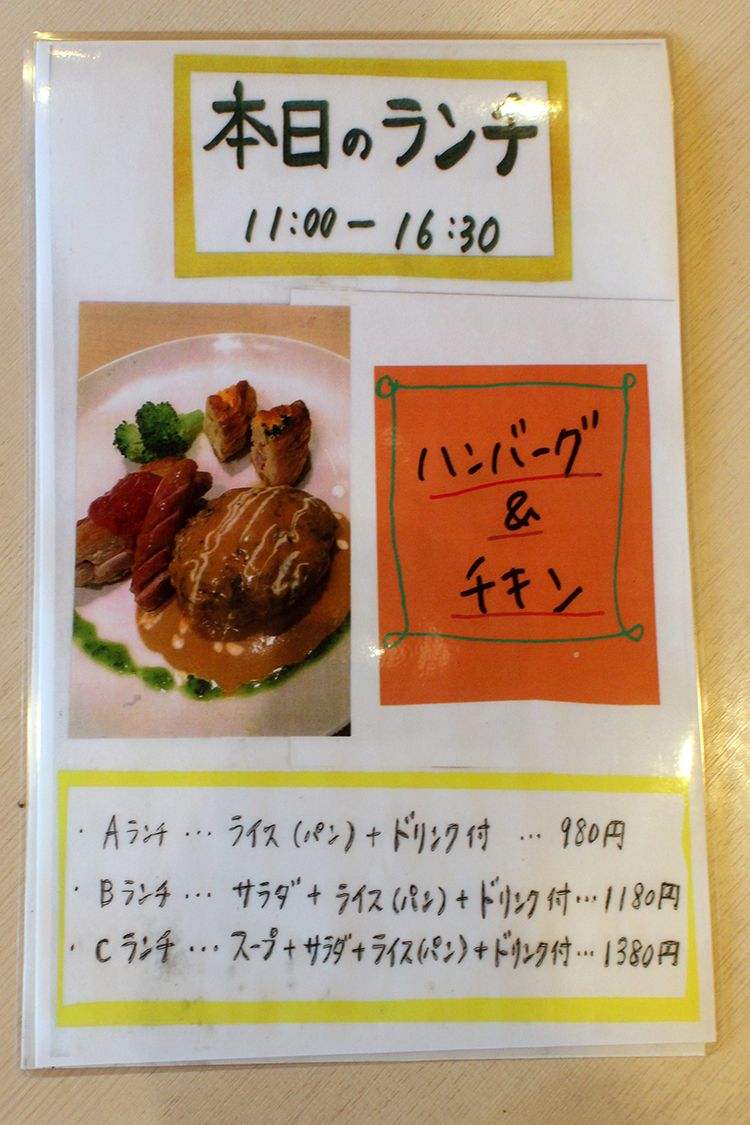 本日のランチ
11:00ー16:30
ハンバーグ
&
チキン
・Aランチ…ライス(パン)+ドリンク付 …980円
・Bランチ…サラダ+ライス(パン)+ドリンク付…1180円
・Cランチ…スープ+サラダ+ライス(パン)+ドリンク付…1380円